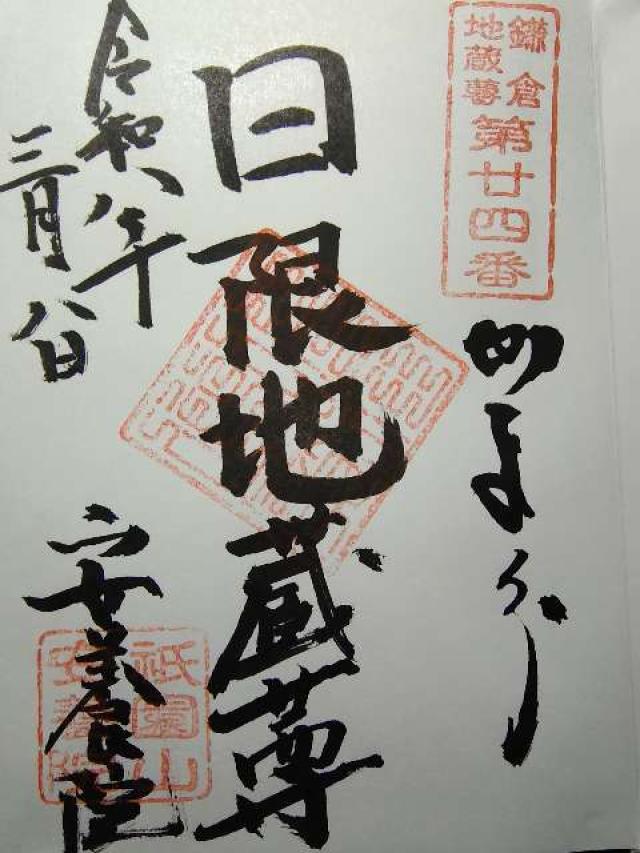 鎌倉
地蔵尊
第廿四番
日限地蔵尊
令和八年
三月八日
安養院
祇園山
安養院